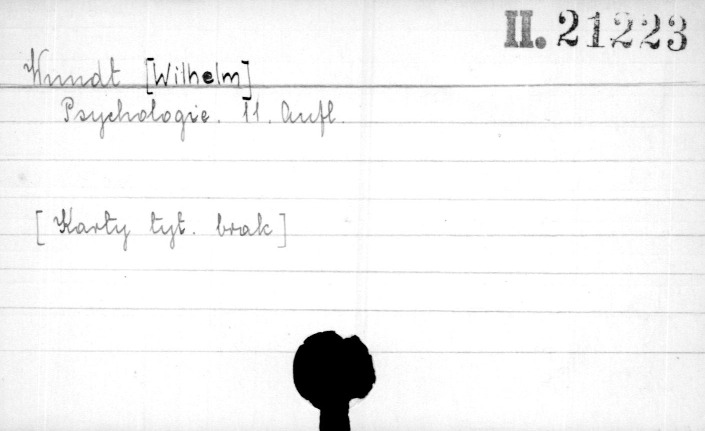 II. 21223
Wundt [Wilhelm]
Psychologie. 11. Aufl.
[Karty tyt. brak]